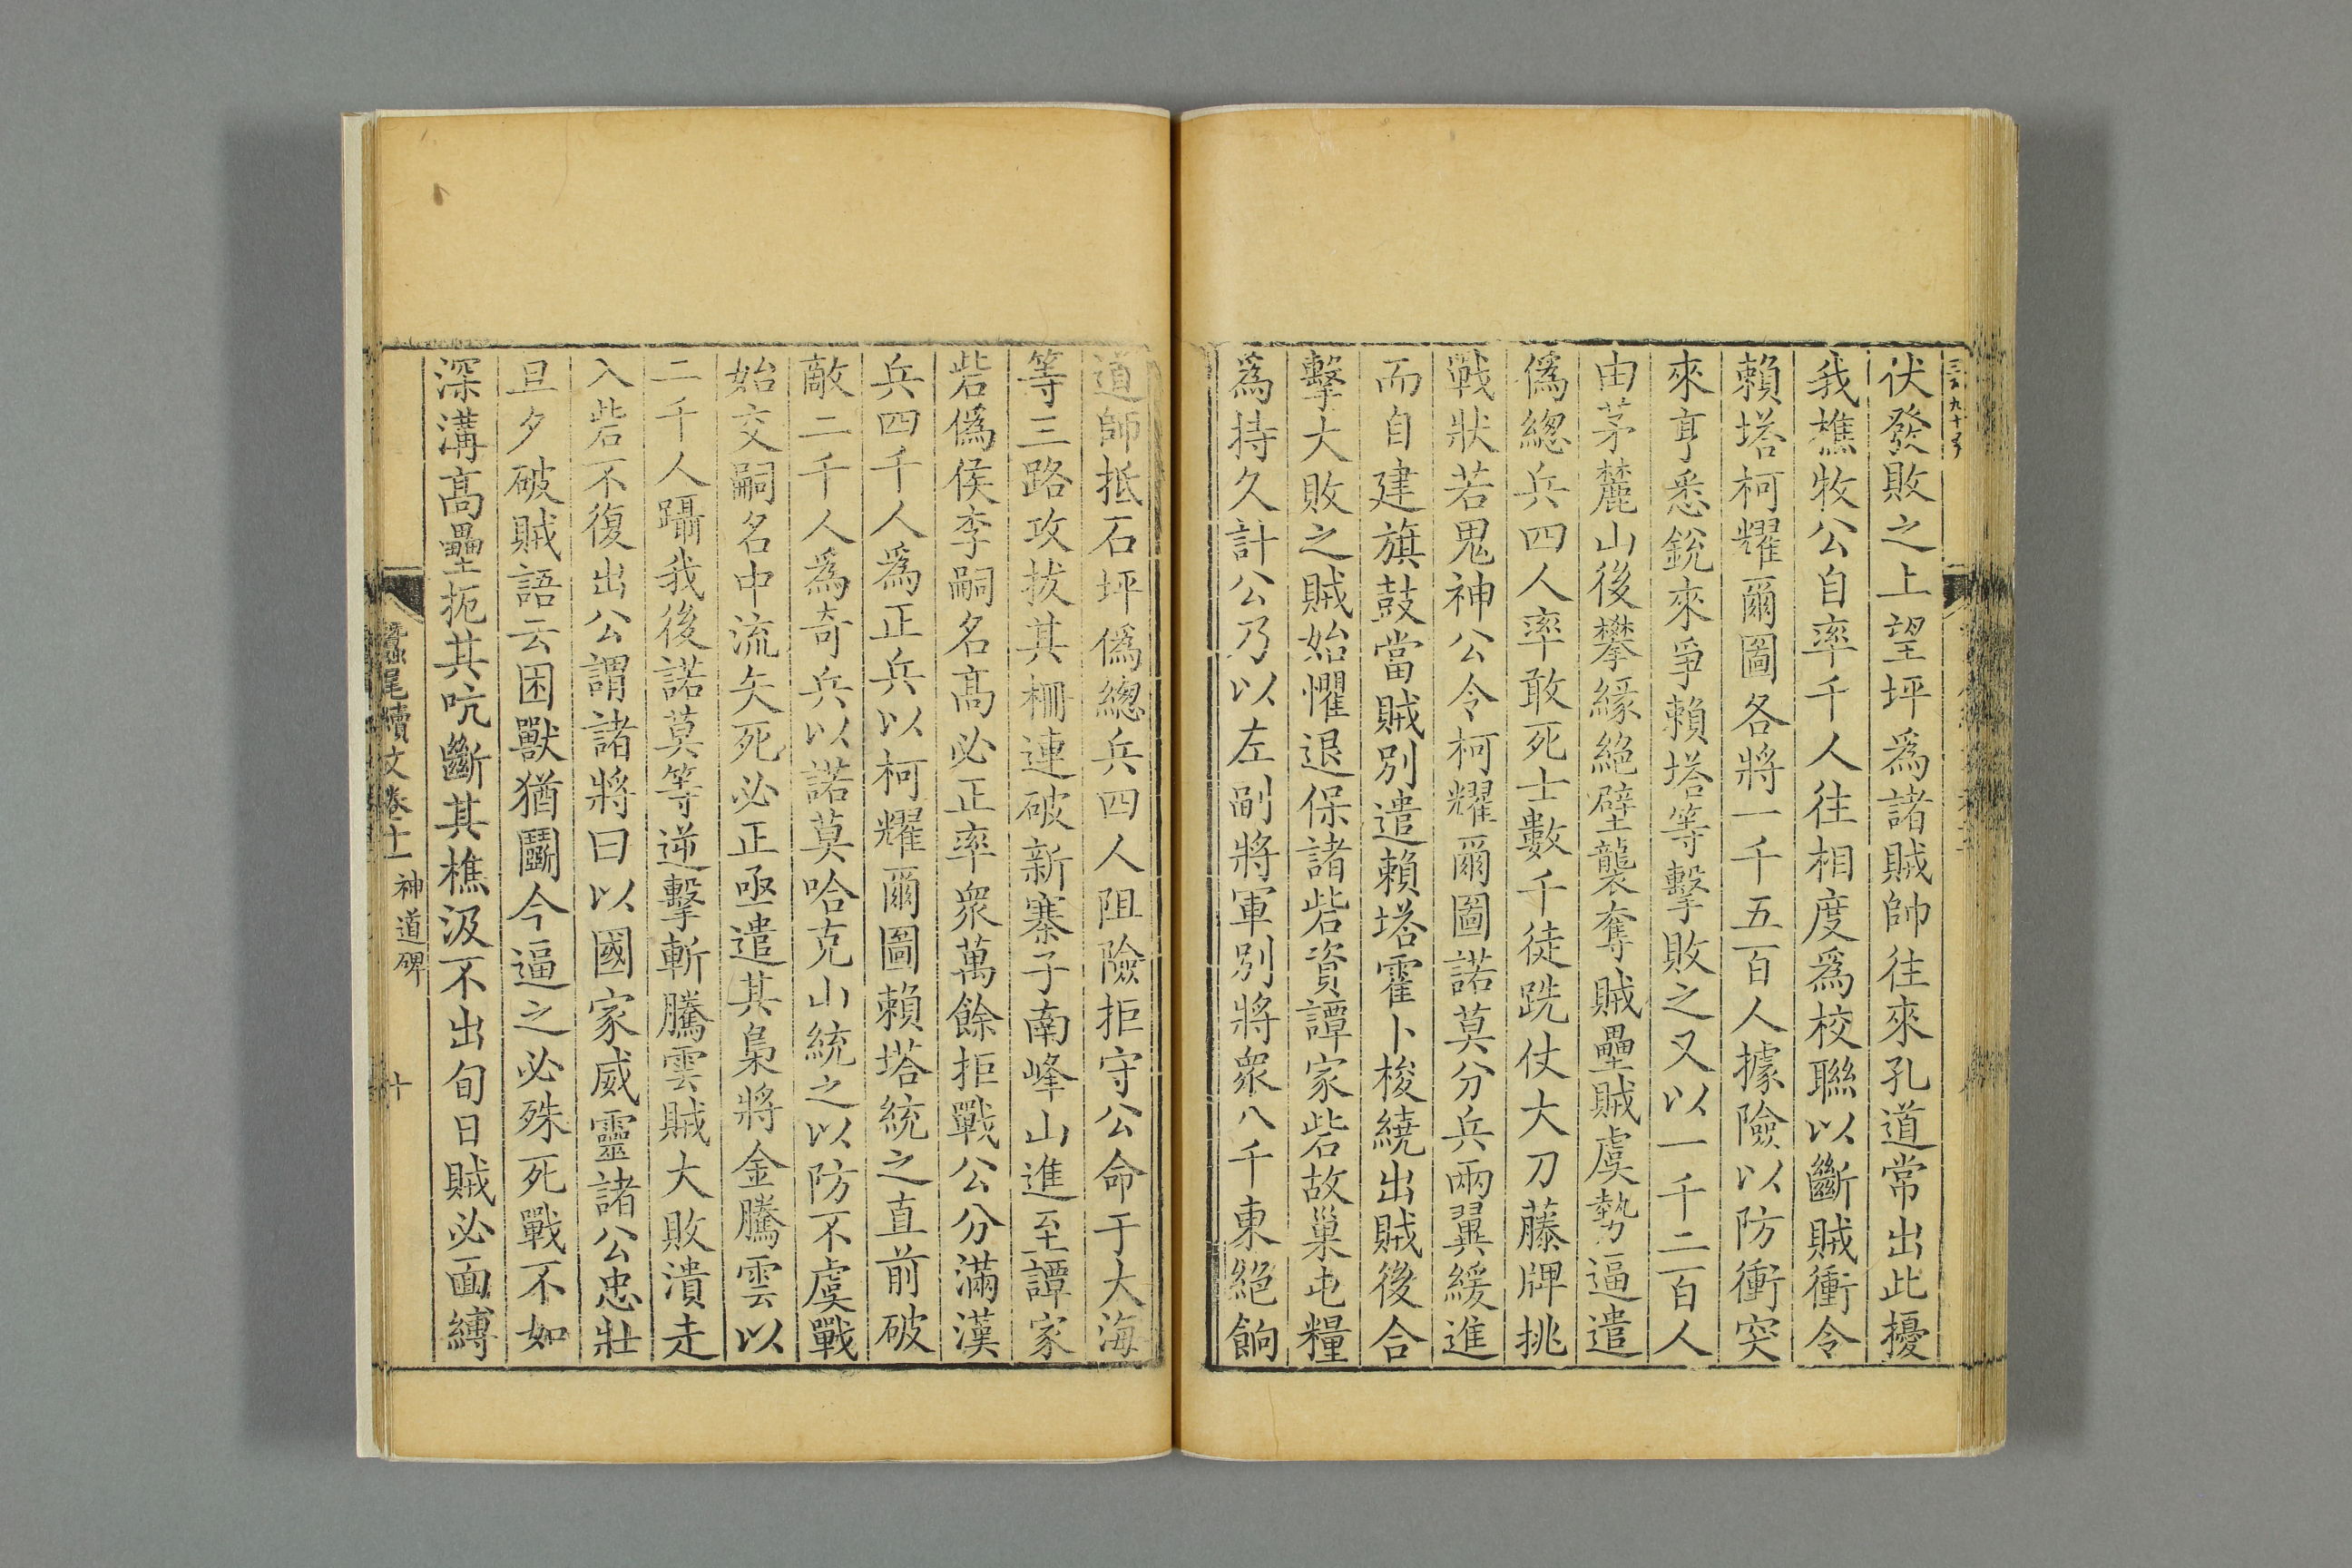 伏發敗之上望坪爲諸賊帥往來孔道常出此擾
我樵牧公自率千人往相度爲校聯以斷賊衝令
賴塔柯耀爾圖各將一千五百人據險以防衝突
來亨悉銳來爭賴塔等擊敗之又以一千二百人
由茅麓山後攀緣絕壁襲奪賊壘賊虞勢逼遣
僞總兵四人率敢死士數千徒跣仗大刀藤牌挑
戰狀若鬼神公令柯耀爾圖諾莫分兵兩翼緩進
而自建旗鼓當賊別遣賴塔霍卜梭繞出賊後合
擊大敗之賊始懼退保諸砦資譚家砦故巢屯糧
爲持久計公乃以左副將軍別將衆八千東絕餉
道師抵石坪僞總兵四人阻險拒守公命于大海
等三路攻拔其柵連破新寨子南峰山進至譚家
砦僞侯李嗣名高必正率衆萬餘拒戰公分滿漢
兵四千人爲正兵以柯耀爾圖賴塔統之直前破
敵二千人爲奇兵以諾莫哈克山統之以防不虞戰
始交嗣名中流矢死必正亟遣其梟將金騰雲以
二千人躡我後諾莫等逆擊斬騰雲賊大敗潰走
入砦不復出公謂諸將曰以國家威靈諸公忠壯
旦夕破賊語云困獸猶鬭今逼之必殊死戰不如
深溝高壘扼其吭斷其樵汲不出旬日賊必面縛
蠶尾續文卷十一 神道碑 十